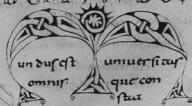 undus est
omnis
universitas
que con
stau